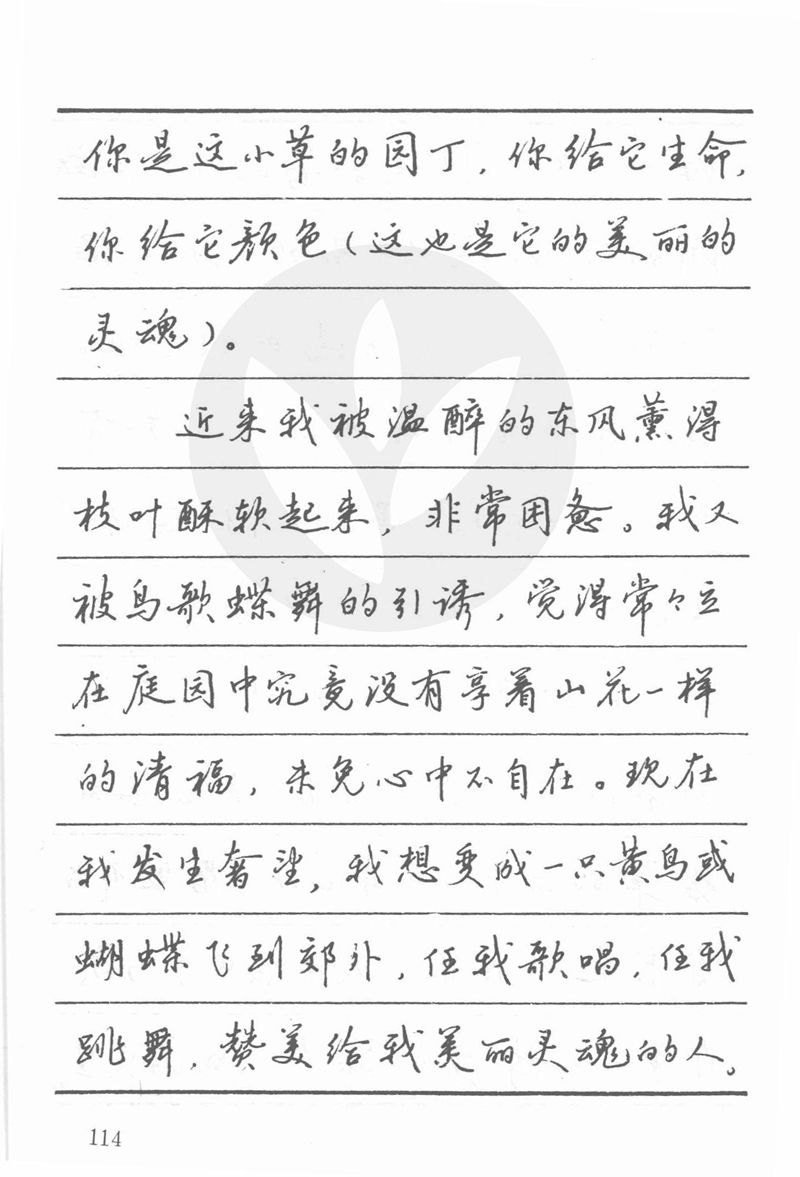 你是这小草的园丁，你给它生命，
你给它颜色（这也是它的美丽的
灵魂）。
近来我被温醉的东风薰得
枝叶酥软起来，非常困惫。我又
被鸟歌蝶舞的引诱，觉得常々立
在庭园中究竟没有享着山花一样
的清福，未免心中不自在。现在
我发生奢望，我想变成一只黄鸟或
蝴蝶飞到郊外，任我歌唱，任我
跳舞，赞美给我美丽灵魂的人。
114